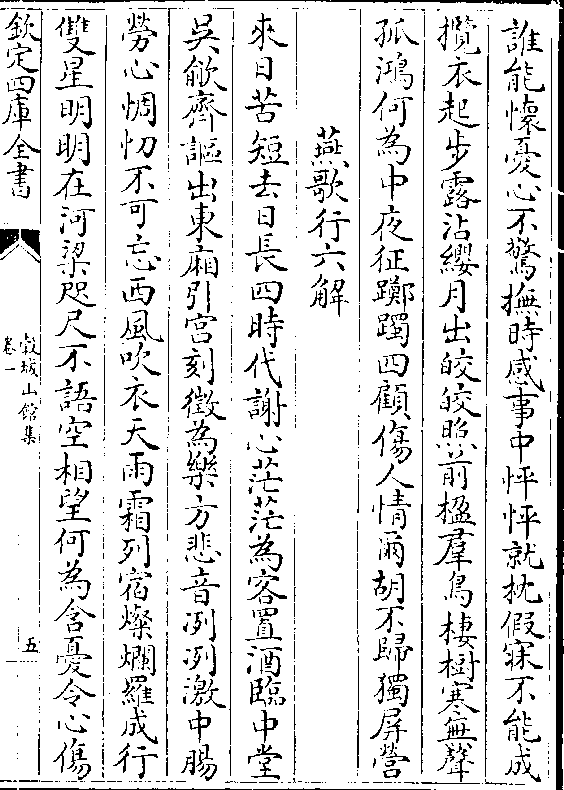 誰能懷憂心不驚撫時感事中怦怦就枕假寐不能成
攬衣起步露沾纓月出皎皎照前楹羣鳥棲樹寒無聲
孤鴻何為中夜征躑躅四顧傷人情爾胡不歸獨屏營
燕歌行六解
來日苦短去日長四時代謝心茫茫為客置酒臨中堂
吳歈齊謳出東廂引宮刻徵為樂方悲音冽冽激中腸
勞心惆忉不可忘西風吹衣天雨霜列宿燦爛羅成行
雙星明明在河梁咫尺不語空相望何為含憂令心傷
欽定四庫全書
穀城山館集
卷一
五